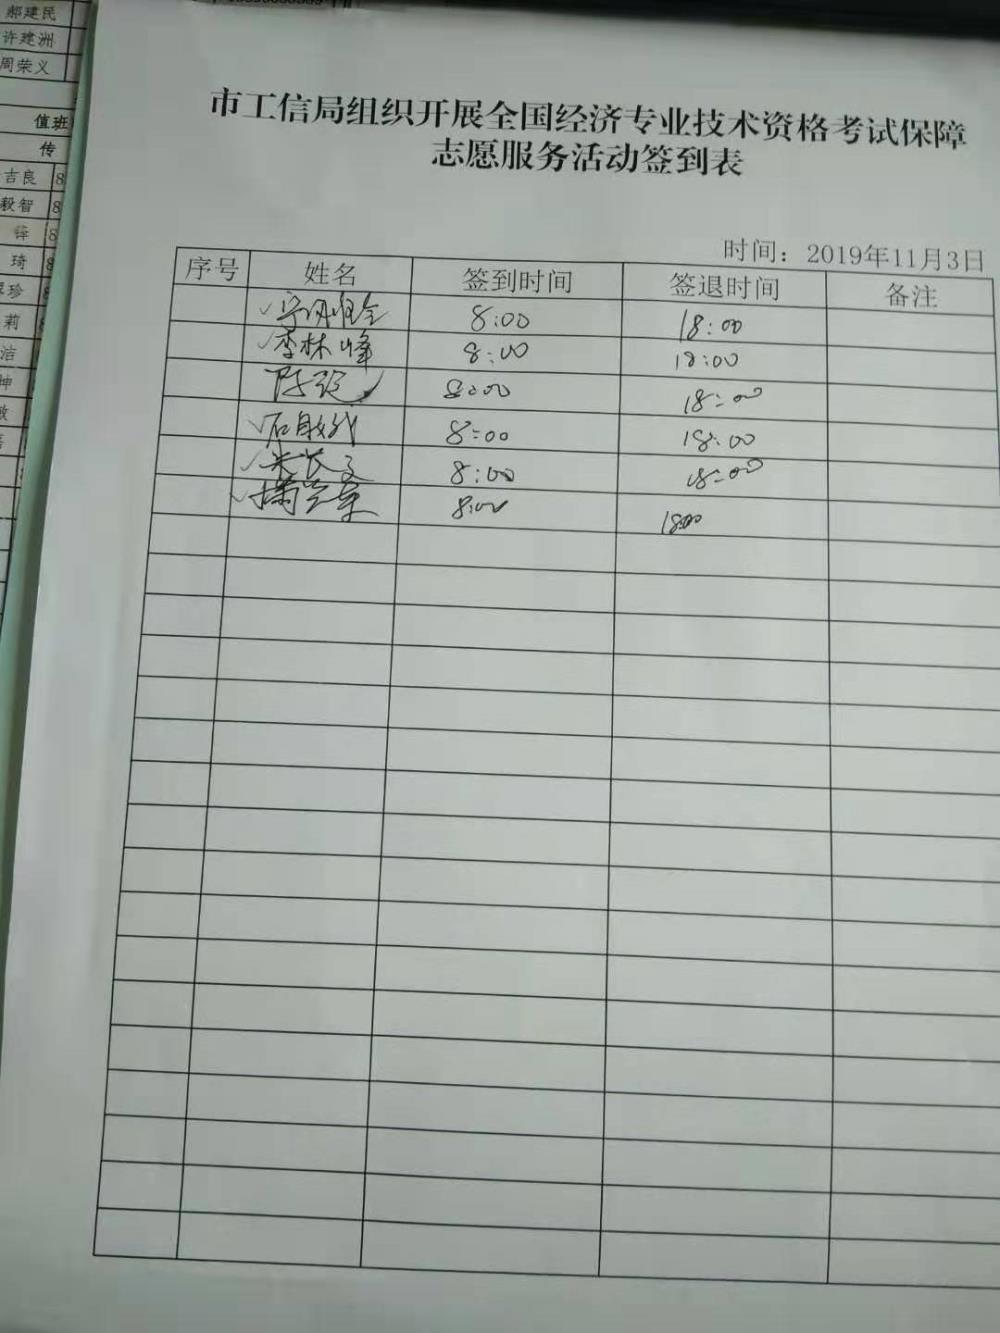 郝建民
许建洲
周荣义
值班
传
吉良 8
毅智 8
锋 8
琦 8
珍 8
莉
洁
坤
敏
市工信局组织开展全国经济专业技术资格考试保障
志愿服务活动签到表
时间：2019年11月3日
序号 姓名 签到时间 签退时间 备注
8:00 18:00
李林峰 8:00 18:00
8:00 18:00
石敢 8:00 18:00
8:00 18:00
8:00 18:00